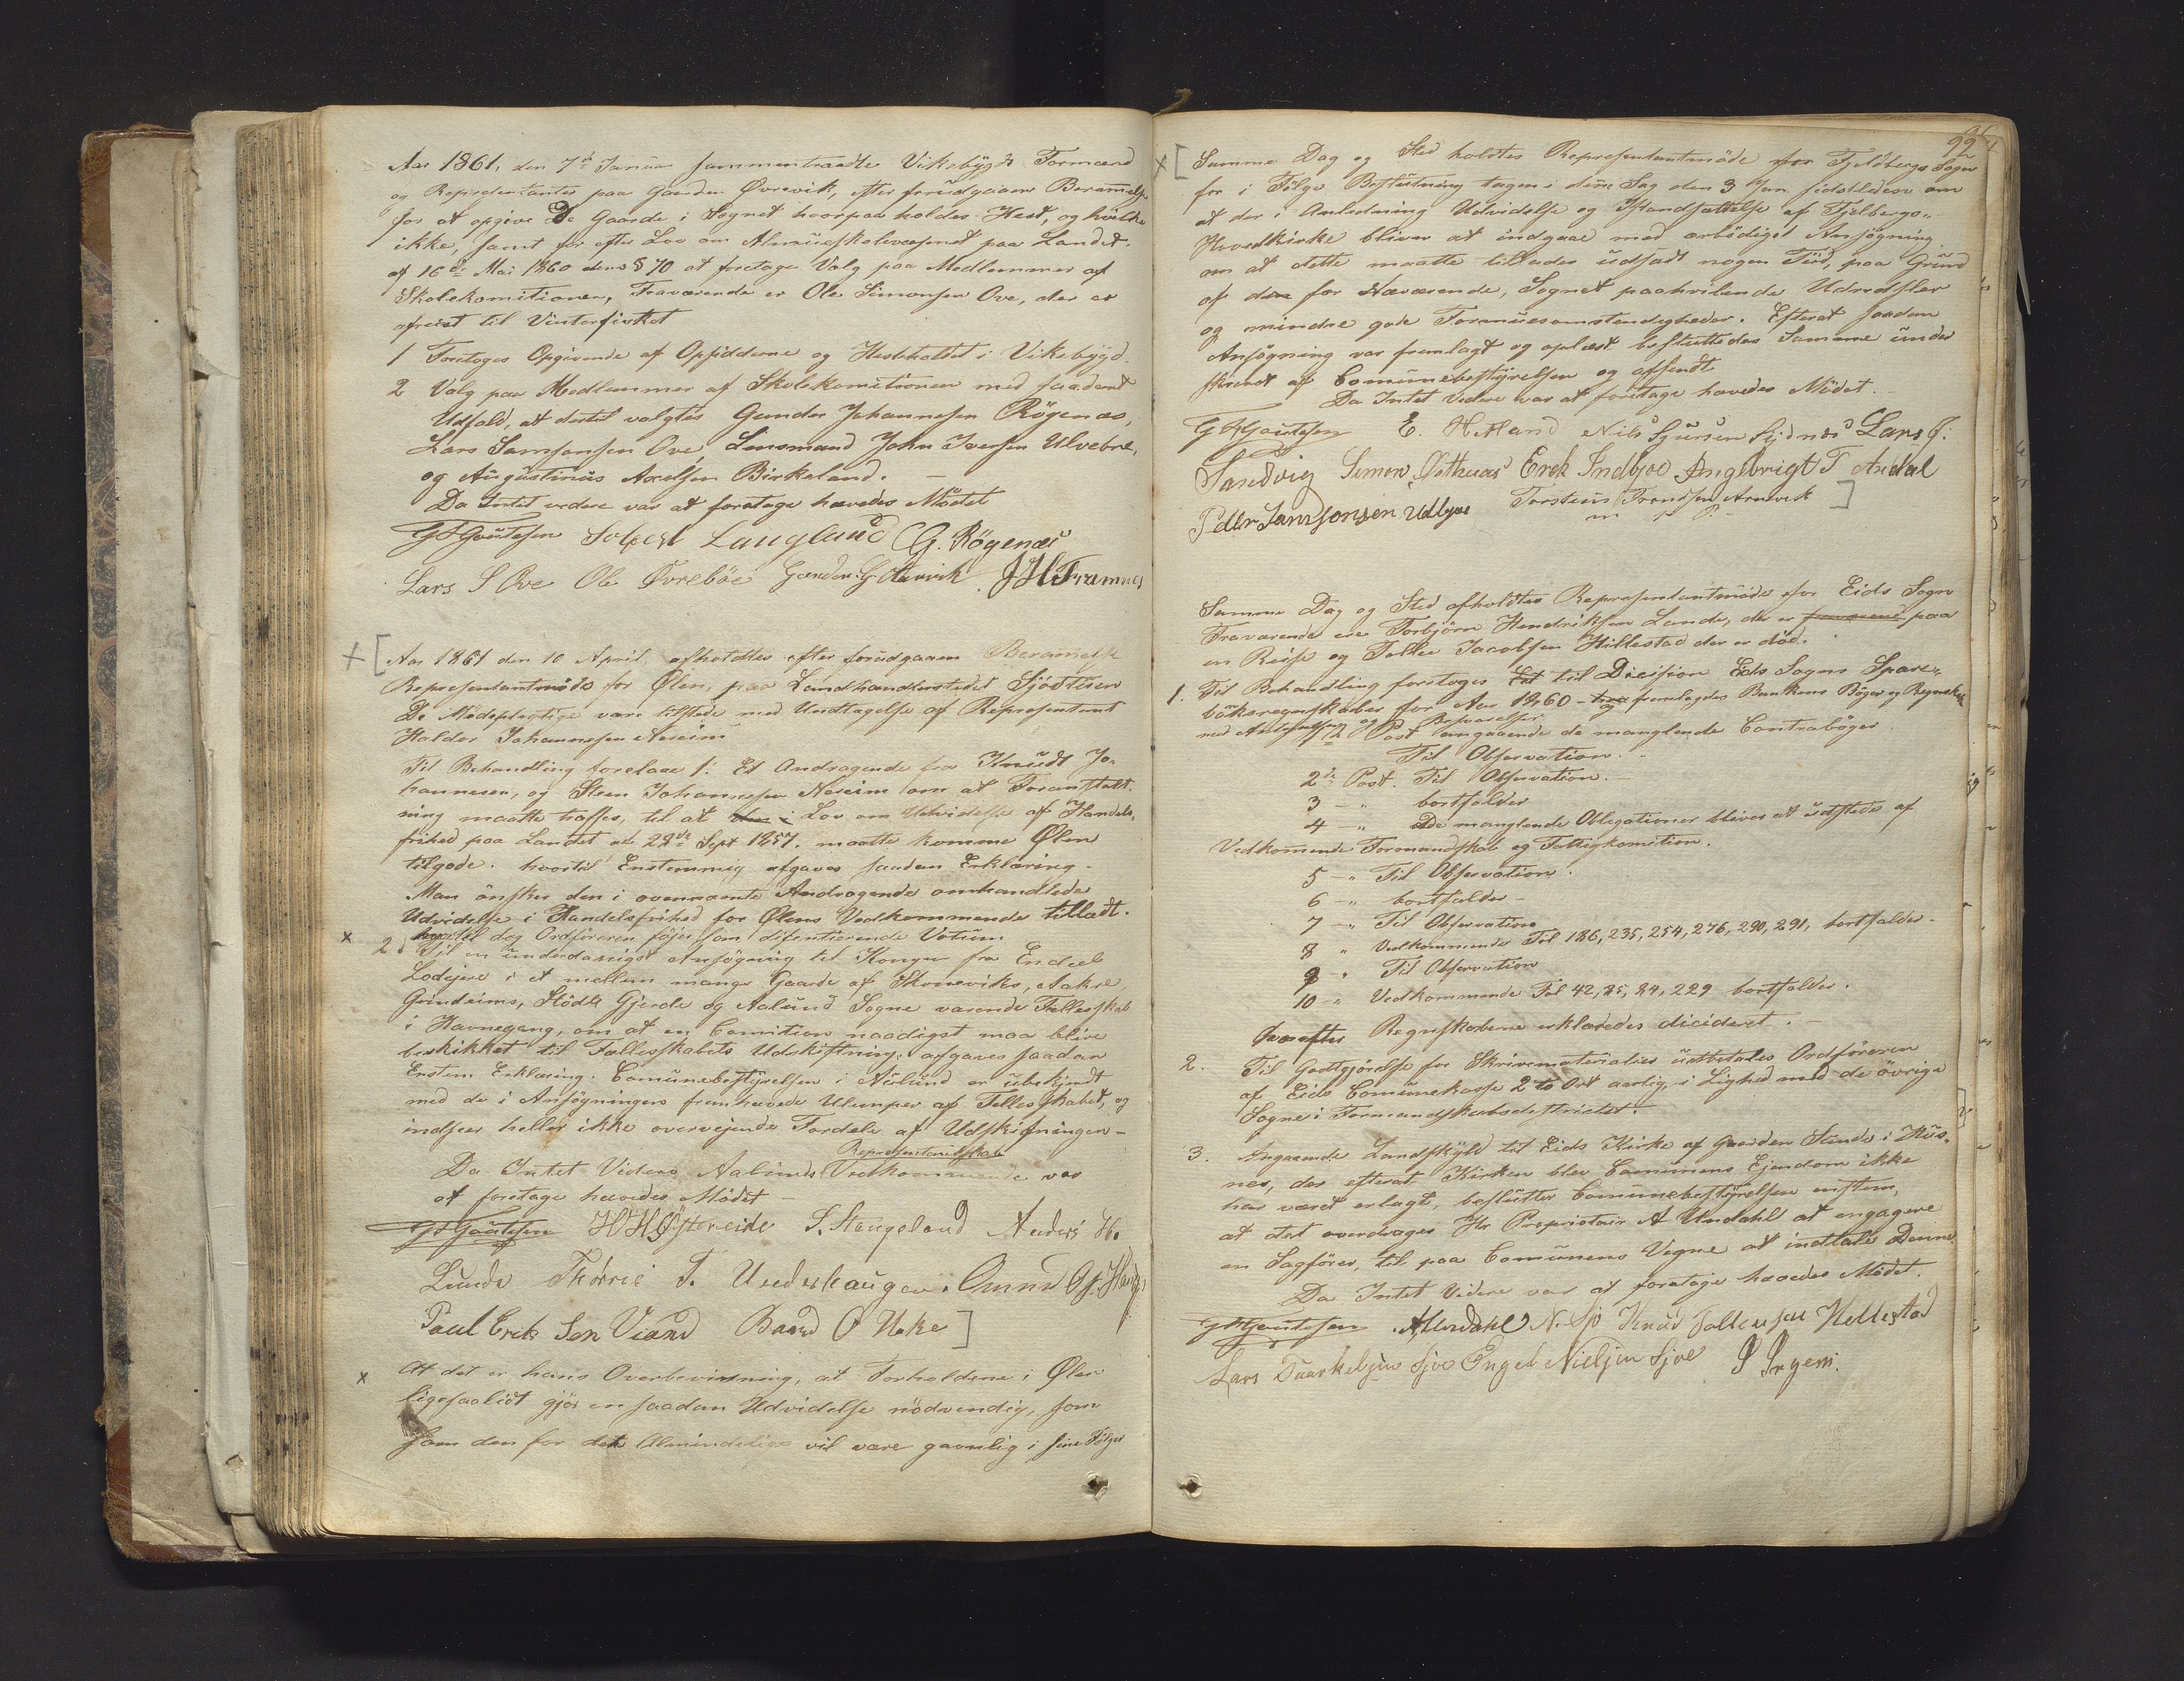 Aar 1861, den 7de Januar sammentraadte Vikebygds Formænd
og Repræsentanter paa Gaarden Øvrevik, efter forudgaaen Berammelse
for at opgive De Gaarde i Sognet hvorpaa holdes Hest, og hvilke
ikke, samt for efter Lov om Almueskolevæsenet paa Landet
af 16de Mai 1860 dens § 70 at foretage Valg paa Medlemmer af
Skolekomitionen, Fraværende er Ole Simonsen Ove, der er
afreist til Vinterfisket
1 Foretoges Opgivende af Opsidderne og Hesteholdet i Vikebygd.
2 Valg paa Medlemmer af Skolekomitionen med saadant
Udfald, at dertil valgtes Gunder Johannesen Røgenæs,
Lars Samsonsen Ove, Lensmand John Iversen Ulvebne,
og Augustinus Axelsen Birkeland. —
Da Intet videre var at foretage hævedes Mødet
G S Gøutesen Langland G. Røgenæs
Lars S Ove Ole Øvrebøe Gunder G J H Framnes
Aar 1861 den 10 April, afholdtes efter forudgaaen Berammelse
Repræsentantmøde for Ølen, paa Landhandlerstedet
De Mødepligtige vare tilstede med Undtagelse af Repræsentant
Halder Johannesen Neseim
Til Behandling forelaae 1: Et Andragende fra Knudt Jo-
hannesen, og Steen Johannesen Neseim om at Foranstalt-
ning maatte træffes, til at den i Lov om Udvidelse af Handels-
frihed paa Landet af 22de Sept 1857. maatte komme Ølen
tilgode. hvortil Enstemmig afgaves saadan Erklæring.
Man ønsker den i ovennævnte Andragende omhandlede
Udvidelse i Handelsfrihed for Ølens Vedkommende tilladt.
x hvortil dog Ordføreren føjer som disentierende Votum
2. Til en underdanigst Ansøgning til Kongen fra Endeel
Lodejere i et mellem mange Gaarde af Skoneviks, Aakre,
Grindeims, Stødle Gjerde og Aalund Sogne varende Fællesskab
i Havnegang, om at en Comition naadigst maa blive
beskikket til Fællesskabets Udskiftning; afgaves saadan
Enstem Erklæring. Comunebestyrelsen i Aalund er ubekjendt
med de i Ansøgningen fremhævede Ulemper af Fællesskabet, og
indseer heller ikke overvejende Fordele af Udskiftningen —
Repræsentantskab
Da Intet Videre Aalunds Vedkommende var
at foretage hævedes Mødet —
G S Gøutesen H H Østereide S. Stangeland Anders H.
Lunde T. Underhaugen.
Paul Eriksen Viand Baard O Hake
x At det er hans Overbevisning, at Forholdene i Ølen
ligesaalidt gjør en saadan Udvidelse nødvendig, som
som den for det Almindelige vil være gavnlig i sine Følger
99
Samme Dag og Sted holdtes Repræsentantmøde for Fjeldbergs Sogn
for i Følge Beslutning tagen i denne Sag den 3 Jan. sidstleden om
at der i Anledning Udvidelse og Istandsættelse af Fjelbergs-
Hovedkirke bliver at indgaae med ærbødigst Ansøgning
om at dette maatte tillades udsadt nogen Tid, paa Grund
af den for Nærværende, Sognet paahvilende Udredsler
og mindre gode Formuesomstendigheder. Efterat saadan
Ansøgning var fremlagt og oplæst besluttedes Samme under-
skrevet af Comunebestyrelsen og afsendt
Da Intet Videre var at foretage hævedes Mødet.
G S Gøutesen E. H Nils Sjursen Lars J.
Sandvig Simon Østhuus Erik Indbjoe Angelbrigt T Ardal
Peder Samsonsen Udbjoe Torstein Trondsen Arnevik
m p P.
Samme Dag og Sted afholdtes Repræsentantmøde for Eids Sogn
Fraværende ere Torbjørn Hendriksen Lande, der er paa
en Reise og Tollev Jacobsen Hillestad der er død.
1. Til Behandling foretoges til Dicision Eids Sogns Spare-
bøksregnskaber for Aar 1860 — fremlagdes Bankens Bøger og Regnskab
med Antegnelser og Besvarelser
1ste Post angaaende de manglende Contrabøger
Til Observation.
2de Post. Til Observation. —
3 — " bortfalder
4 — " De manglende Obligationer bliver at udstede af
Vedkommende Formandskab og Fattigkomition.
5 — " Til Observation.
6 — " bortfalder —
7 — " Til Observation
8 " Vedkommende Fol 186, 235, 254, 276, 290, 291, bortfalder —
9 — " Til Observation
10 — " Vedkommende Fol 42, 85, 84, 229 bortfalder.
hvorefter Regnskaberne erklæredes dicideret. —
2. Til Godtgjørelse for Skrivematerialier udbetales Ordføreren
af Eids Comunekasse 2 to Ort aarlig, i Lighed med de øvrige
Sogne i Formandskabsdistrictet.
3. Angaaende Landskyld til Eids Kirke af Gaarden Sunde i Hus-
nes, der efterat Kirken blev Comunens Ejendom ikke
har været erlagt, beslutter Comunebestyrelsen enstem,
at det overdrages Hr Proprietair A Undahl at engagere
en Sagfører, til paa Comunens Vegne at indtale Denne.
Da Intet Videre var at foretage hævedes Mødet.
G S Gøutesen A Undahl N. Sjo Knud Tollevsen Hillestad
Lars Sjoe Engel Nielsen Sjoe